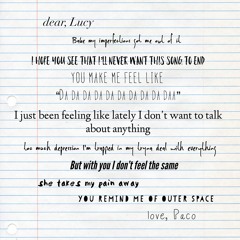 dear, Lucy
Babe my imperfections got me out of it
I HOPE YOU SEE THAT I'LL NEVER WANT THIS SONG TO END
YOU MAKE ME FEEL LIKE
"DA DA DA DA DA DA DA DA DA DAA"
I just been feeling like lately I don't want to talk
about anything
Too much depression I'm trapped in my brain deal with everything
But with you I don't feel the same
she takes my pain away
YOU REMIND ME OF OUTER SPACE
love, Paco